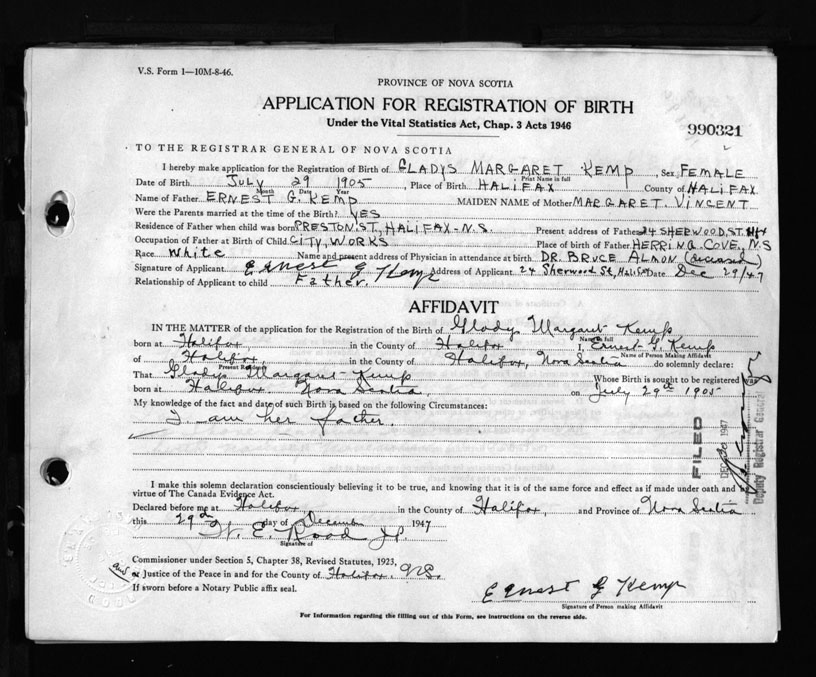 V.S. Form 1—10M-8-46.
PROVINCE OF NOVA SCOTIA
APPLICATION FOR REGISTRATION OF BIRTH
Under the Vital Statistics Act, Chap. 3 Acts 1946
990321
TO THE REGISTRAR GENERAL OF NOVA SCOTIA
I hereby make application for the Registration of Birth of GLADYS MARGARET KEMP, Sex FEMALE
Print Name in full
Date of Birth JULY 29 1905, Place of Birth HALIFAX County of HALIFAX
Month Day Year
Name of Father ERNEST G. KEMP MAIDEN NAME of Mother MARGARET. VINCENT
Were the Parents married at the time of the Birth? YES
Residence of Father when child was born PRESTON ST, HALIFAX-N.S. Present address of Father 24 SHERWOOD. ST. Hfx
Occupation of Father at Birth of Child CITY, WORKS Place of birth of Father HERRING. COVE, N.S
Race White Name and present address of Physician in attendance at birth DR. BRUCE ALMON (deceased)
Signature of Applicant Ernest G Kemp Address of Applicant 24 Sherwood St, Halifax Date Dec 29/47
Relationship of Applicant to child Father.
AFFIDAVIT
IN THE MATTER of the application for the Registration of the Birth of Gladys Margaret Kemp
Name in full
born at Halifax in the County of Halifax I, Ernest G. Kemp
Name of Person Making Affidavit
of Halifax, in the County of Halifax, Nova Scotia do solemnly declare:
That Gladys Margaret Kemp Whose Birth is sought to be registered was
born at Halifax Nova Scotia, on July 29th 1905
My knowledge of the fact and date of such Birth is based on the following Circumstances:
I am her father.
FILED
DEC 1947
Deputy Registrar General
I make this solemn declaration conscientiously believing it to be true, and knowing that it is of the same force and effect as if made under oath and by
virtue of The Canada Evidence Act.
Declared before me at Halifax, in the County of Halifax, and Province of Nova Scotia
this 29th day of December 1947
W. E. Rood J.P.
Signature of
Commissioner under Section 5, Chapter 38, Revised Statutes, 1923,
or Justice of the Peace in and for the County of Halifax. N.S.
If sworn before a Notary Public affix seal.
Ernest G Kemp
Signature of Person making Affidavit
For Information regarding the filling out of this Form, see instructions on the reverse side.